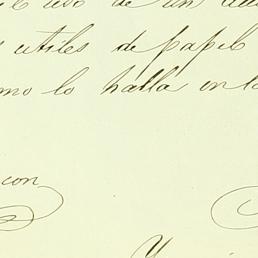 de un
utiles de papel
mo lo halla en la
con